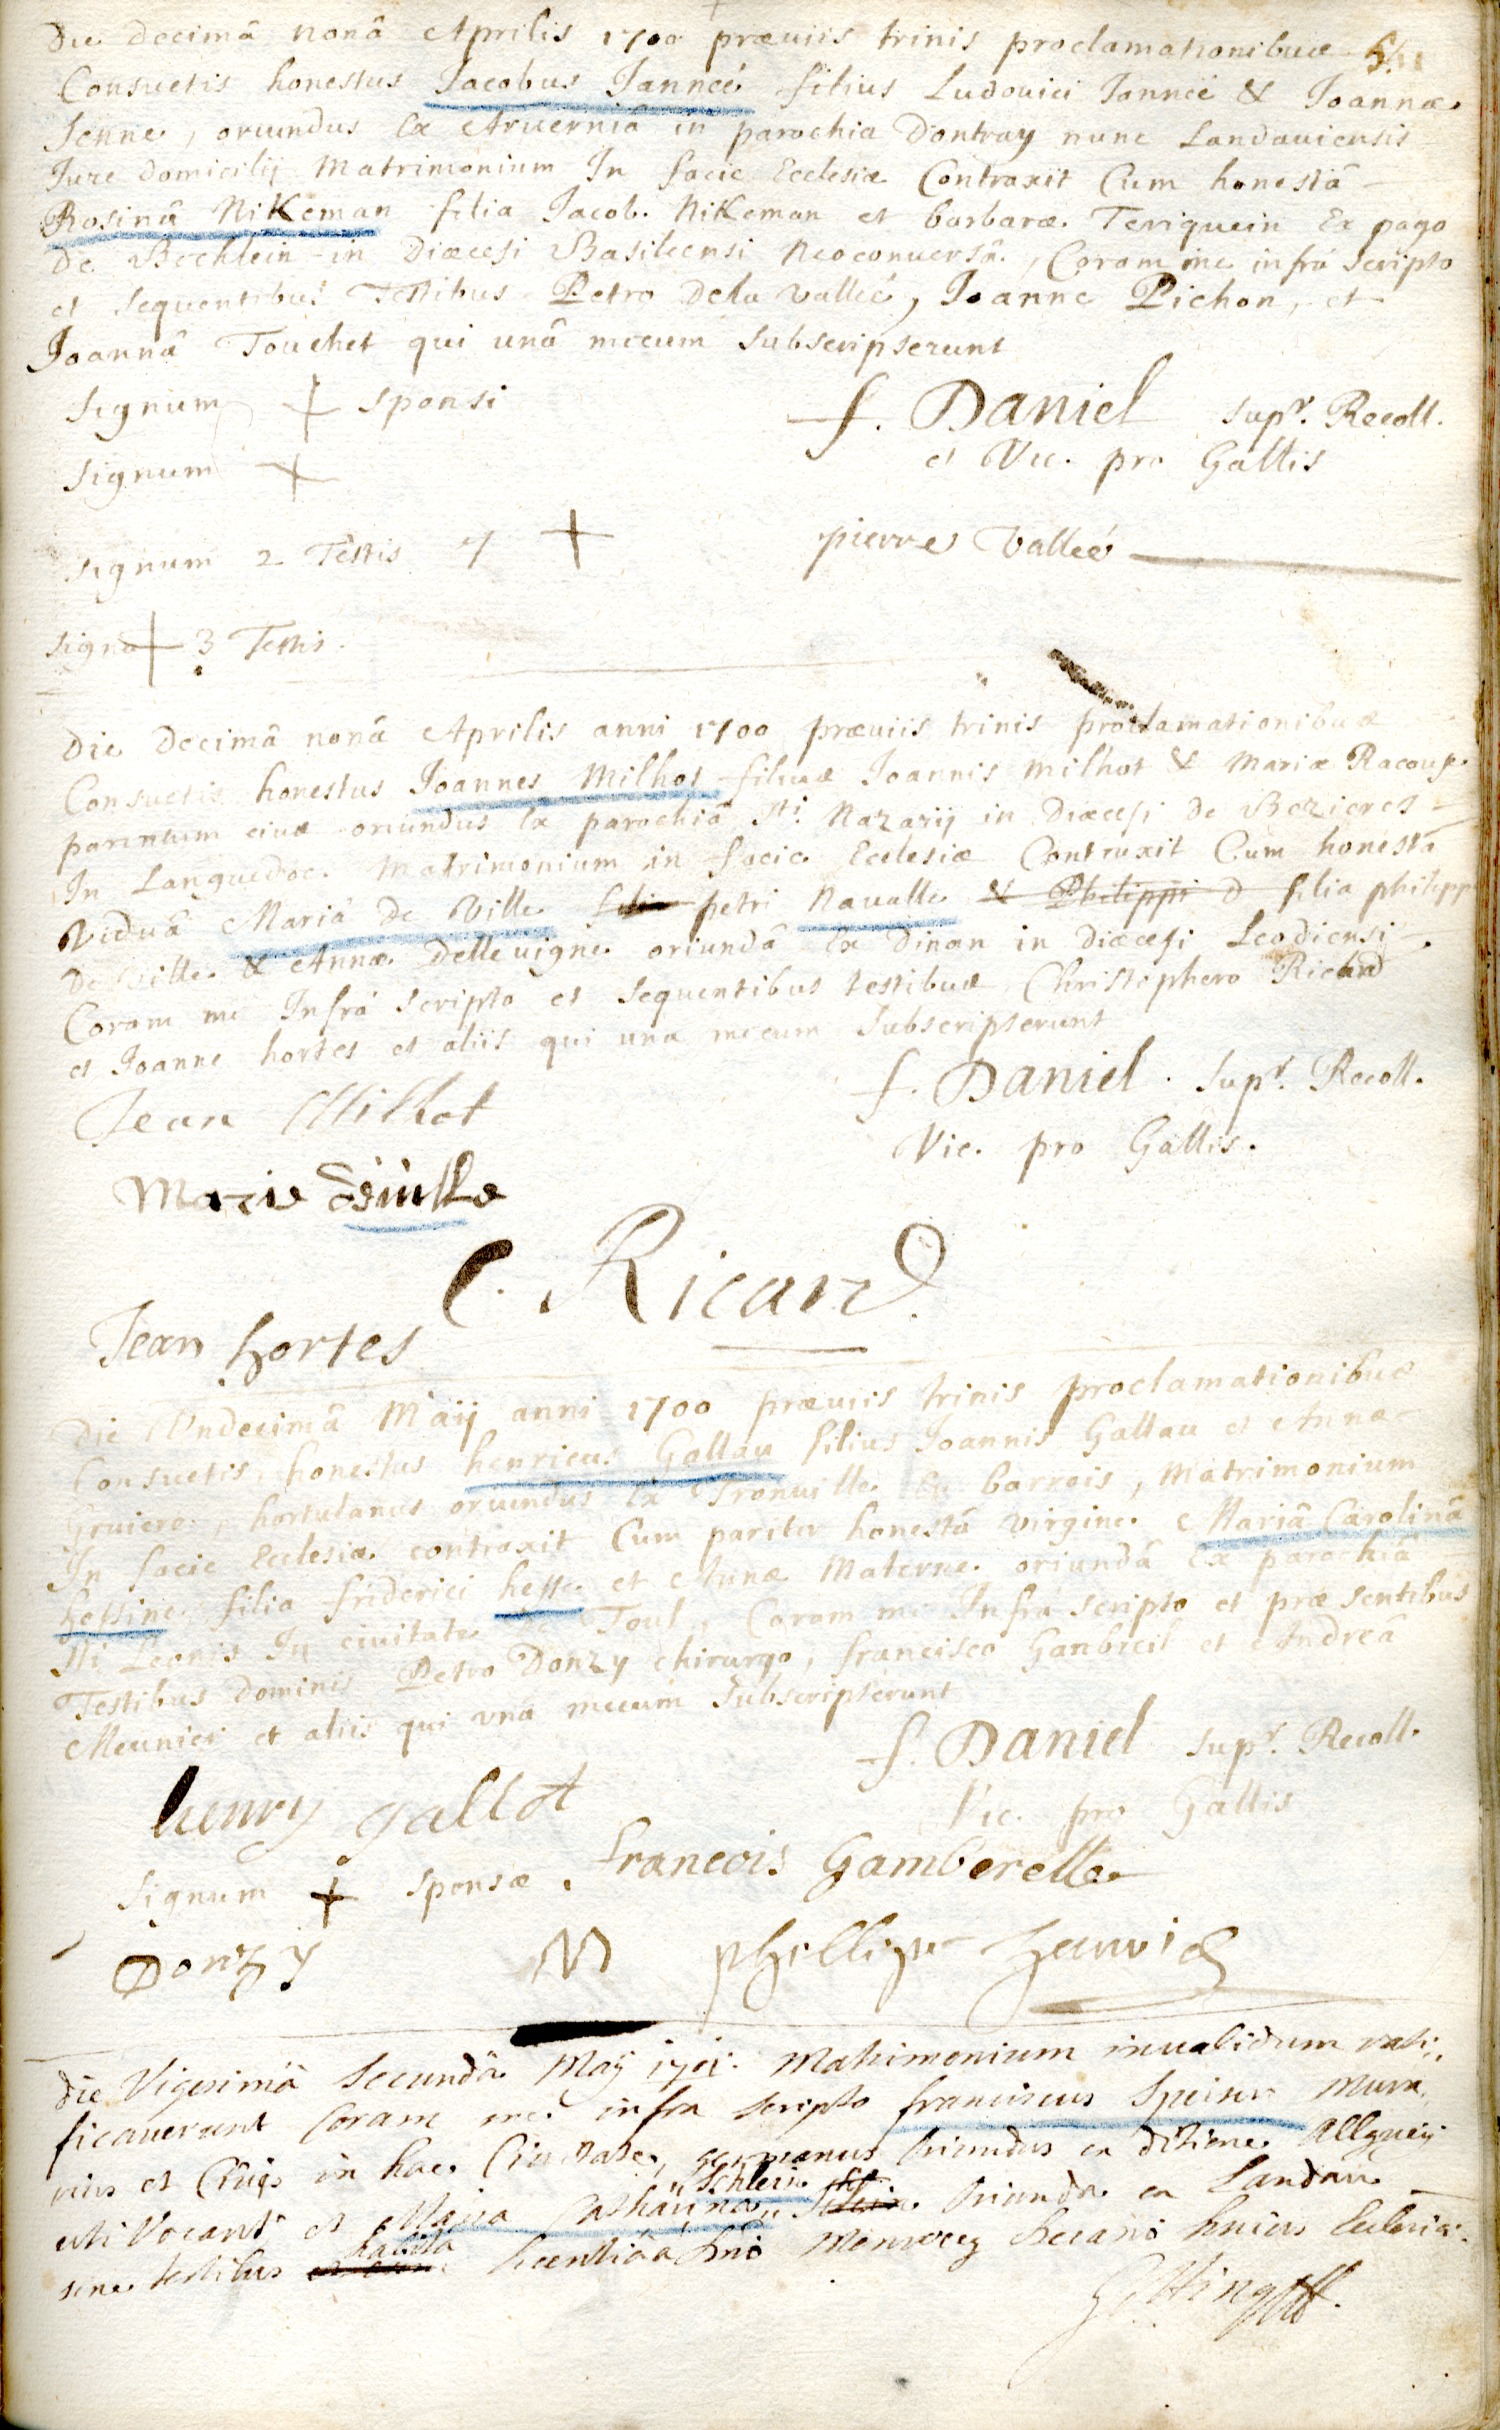 Die decimâ nonâ Aprilis 1700 præuiis trinis proclamationibus
Consuetis honestus Jacobus Janneé filius Ludouici Janneé & Joannæ
Jenne, oriundus Ex Aruerniâ in parochia Dontray nunc Landauiensis
Jure domicilij Matrimonium In facie Ecclesiæ Contraxit Cum honestâ
Rosinâ NiKeman filia Jacob. NiKeman et barbaræ Teriquein Ex pago
De Bechlein in Diœcesi Basileensi Neoconuersâ, Coram me infrà scripto
et sequentibus Testibus Petro Dela valleé, Joanne Pichon, et
Joannâ Touchet qui unâ mecum subscripserunt
signum + sponsi
f. Daniel supr. Recoll.
signum +
et Vic. pro Gallis
signum 2 Testis +
pierre valleé
signū + 3 Testis.
Die decimâ nonâ Aprilis anni 1700 præuiis trinis proclamationibus
Consuetis honestus Joannes Milhot filius Joannis milhot & Mariæ Racoup
parentum eius oriundus Ex parochiâ Sti. Nazarij in Diœcesi de Bezieres
In Languedoc. Matrimonium in facie Ecclesiæ Contraxit Cum honestâ
Viduâ Mariâ de Ville petri Naualle & Philippi D filia philipp
De ville & Annæ Delleuigne oriundâ Ex Dinan in diœcesi Leodiensi.
Coram me Infrà scripto et sequentibus testibus Christophero Ricard
et Joanne hortes et aliis qui una mecum subscripserunt
f. Daniel. supr. Recoll.
Jean Millot
Vic. pro Gallis.
Marie deuille
C. Ricard
Jean hortes
Die Undecimâ Maij anni 1700 præuiis trinis proclamationibus
Consuetis, honestus henricus Gallau filius Joannis Gallau et Annæ
Gruiere, hortulanus oriundus Ex Tronuille En barrois, Matrimonium
In facie Ecclesiæ contraxit Cum pariter honestâ virgine Mariâ Carolinâ
hessine filia friderici hesse et Annæ Materne oriundâ Ex parochiâ
Sti Leonis In ciuitate de Toul, Coram me Infrà scripto et præsentibus
Testibus dominis Petro Donzy chirurgo, francisco Ganbreil et Andreâ
Meunier et aliis qui unâ mecum subscripserunt
f. Daniel supr. Recoll.
henry gallot
Vic. pro Gallis
signum + sponsæ.
francois Gamberelle
Donzy
M
phillipe
die Vigesimâ Secundâ Maÿ 1701. Matrimonium inualidum rati„
ficauerunt Coram me infra scripto franciscus Speiser Mura„
rius et Ciuis in hac Ciuitate, germanus oriundus ex ditione Allgueij
Schlein
uti vocant et Maria Catharina oriunda ex Landau
habita
sine testibus licentiâ a Dno decano huius